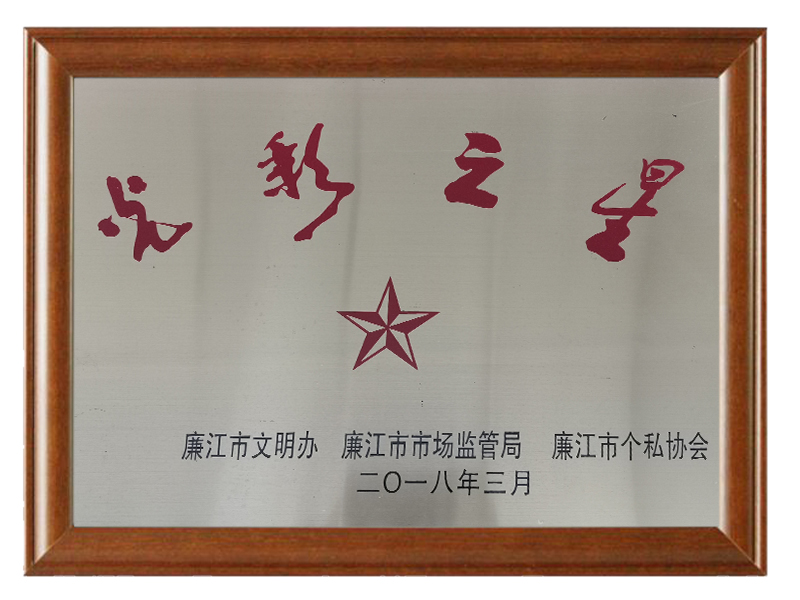 光彩之星
廉江市文明办 廉江市市场监管局 廉江市个私协会
二〇一八年三月